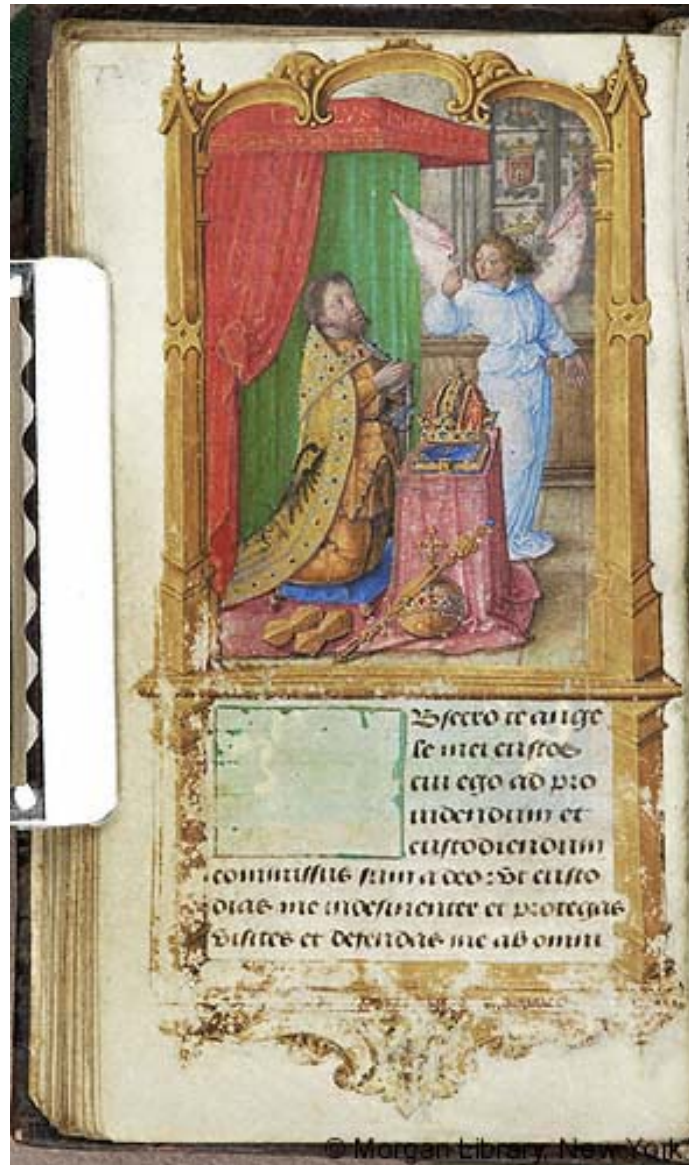 Obsecro te ange
le mei custos
cui ego ad pro
uidendum et
custodiendum
commissus sum a deo: vt custo
dias me indesinenter et protegas
visites et defendas me ab omni
© Morgan Library, New York